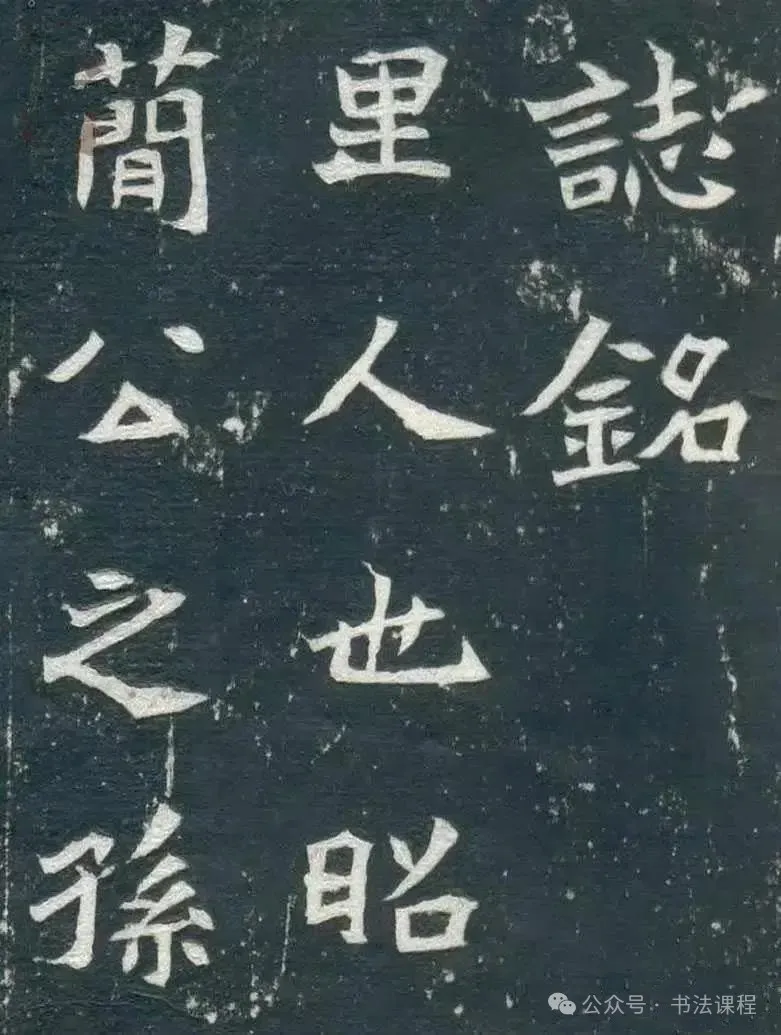 誌銘
里人也昭
蕳公之孫
公众号 · 书法课程